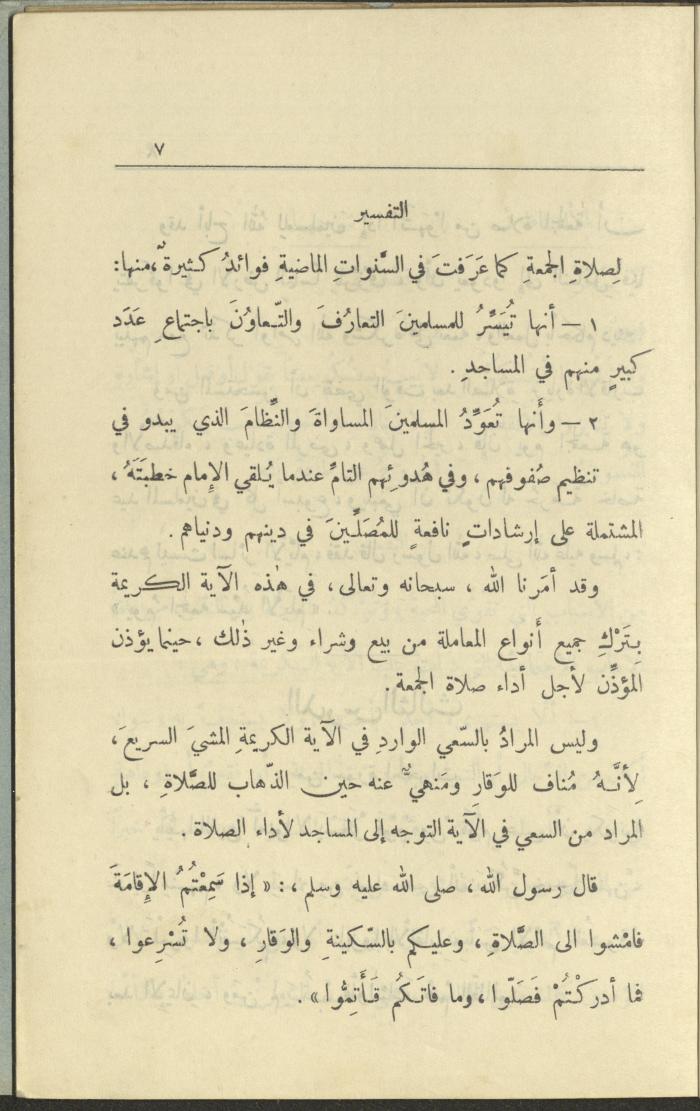 ٧
التفسير
لِصلاةِ الجمعةِ كما عَرَفتَ في السَّنواتِ الماضيةِ فوائدُ كثيرةٌ، منها:
١ — أنها تُيَسِّرُ للمسلمينَ التعارُفَ والتَّعاوُنَ باجتماعِ عَدَد
كبيرٍ منهم في المساجدِ .
٢ — وأَنها تُعَوِّدُ المسلمينَ المساواةَ والنِّظامَ الذي يبدو في
تنظيم صُفوفهم ، وفي هُدوئِهم التامِّ عندما يُلقي الإِمام خطبتَهُ ،
المشتملة على إرشاداتٍ نافعةٍ للمُصَلِّينَ في دينهم ودنياهم .
وقد أمَرنا الله ، سبحانه وتعالى، في هٰذه الآية الكريمة
بِتَرْكِ جميع أَنواع المعاملة من بيع وشراء وغير ذٰلك ، حينما يؤذن
المؤذِّن لأجل أداء صلاة الجمعة .
وليس المرادُ بالسّعي الواردِ في الآية الكريمةِ المشيَ السريعَ ،
لِأنَّهُ مُناف للوَقارِ ومَنهيٌّ عنه حين الذّهاب للصَّلاةِ ، بل
المراد من السعي في الآية التوجه إلى المساجد لأداء الصلاة .
قال رسول الله ، صلى الله عليه وسلم ، : « إذا سَمِعْتُمُ الإِقامَةَ
فامْشوا الى الصَّلاةِ ، وعليكم بالسّكينةِ والوَقارِ ، ولا تُسْرِعوا ،
فما أدركْتُمْ فَصَلّوا ، وما فاتَكُم فَأَتِمُّوا » .